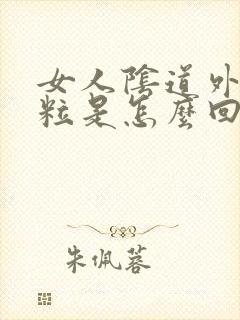 女人陰道外
粒是怎麼回
朱佩蓉